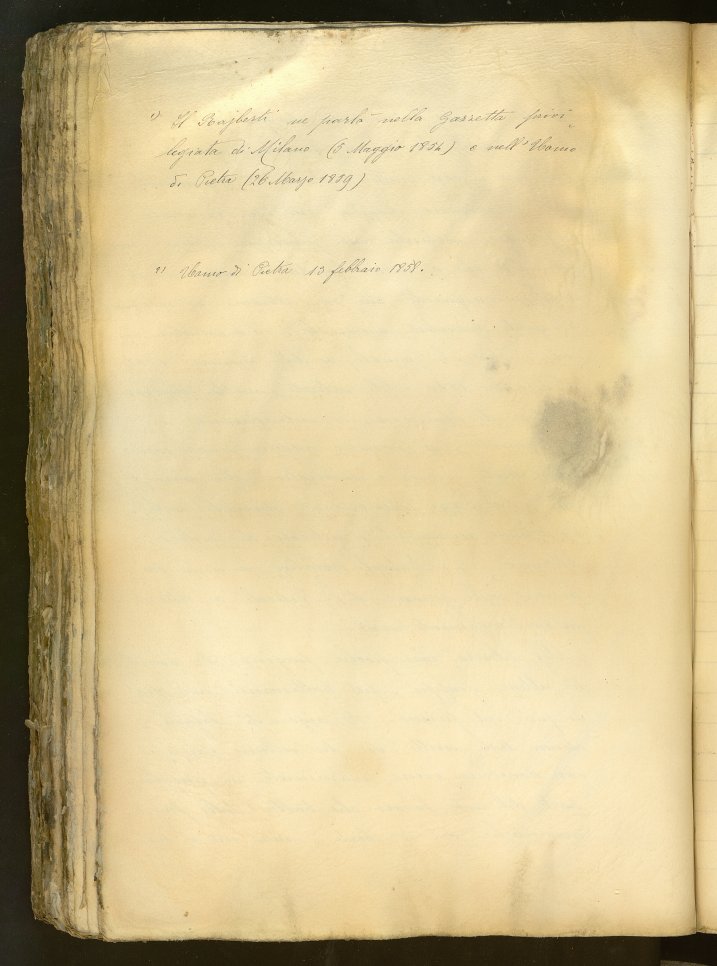 1) Il Rajberti ne parlò nella Gazzetta privi-
legiata di Milano (5 Maggio 1854) e nell'Uomo
di Pietra (26 Marzo 1859)
2) Uomo di Pietra 13 febbraio 1858.